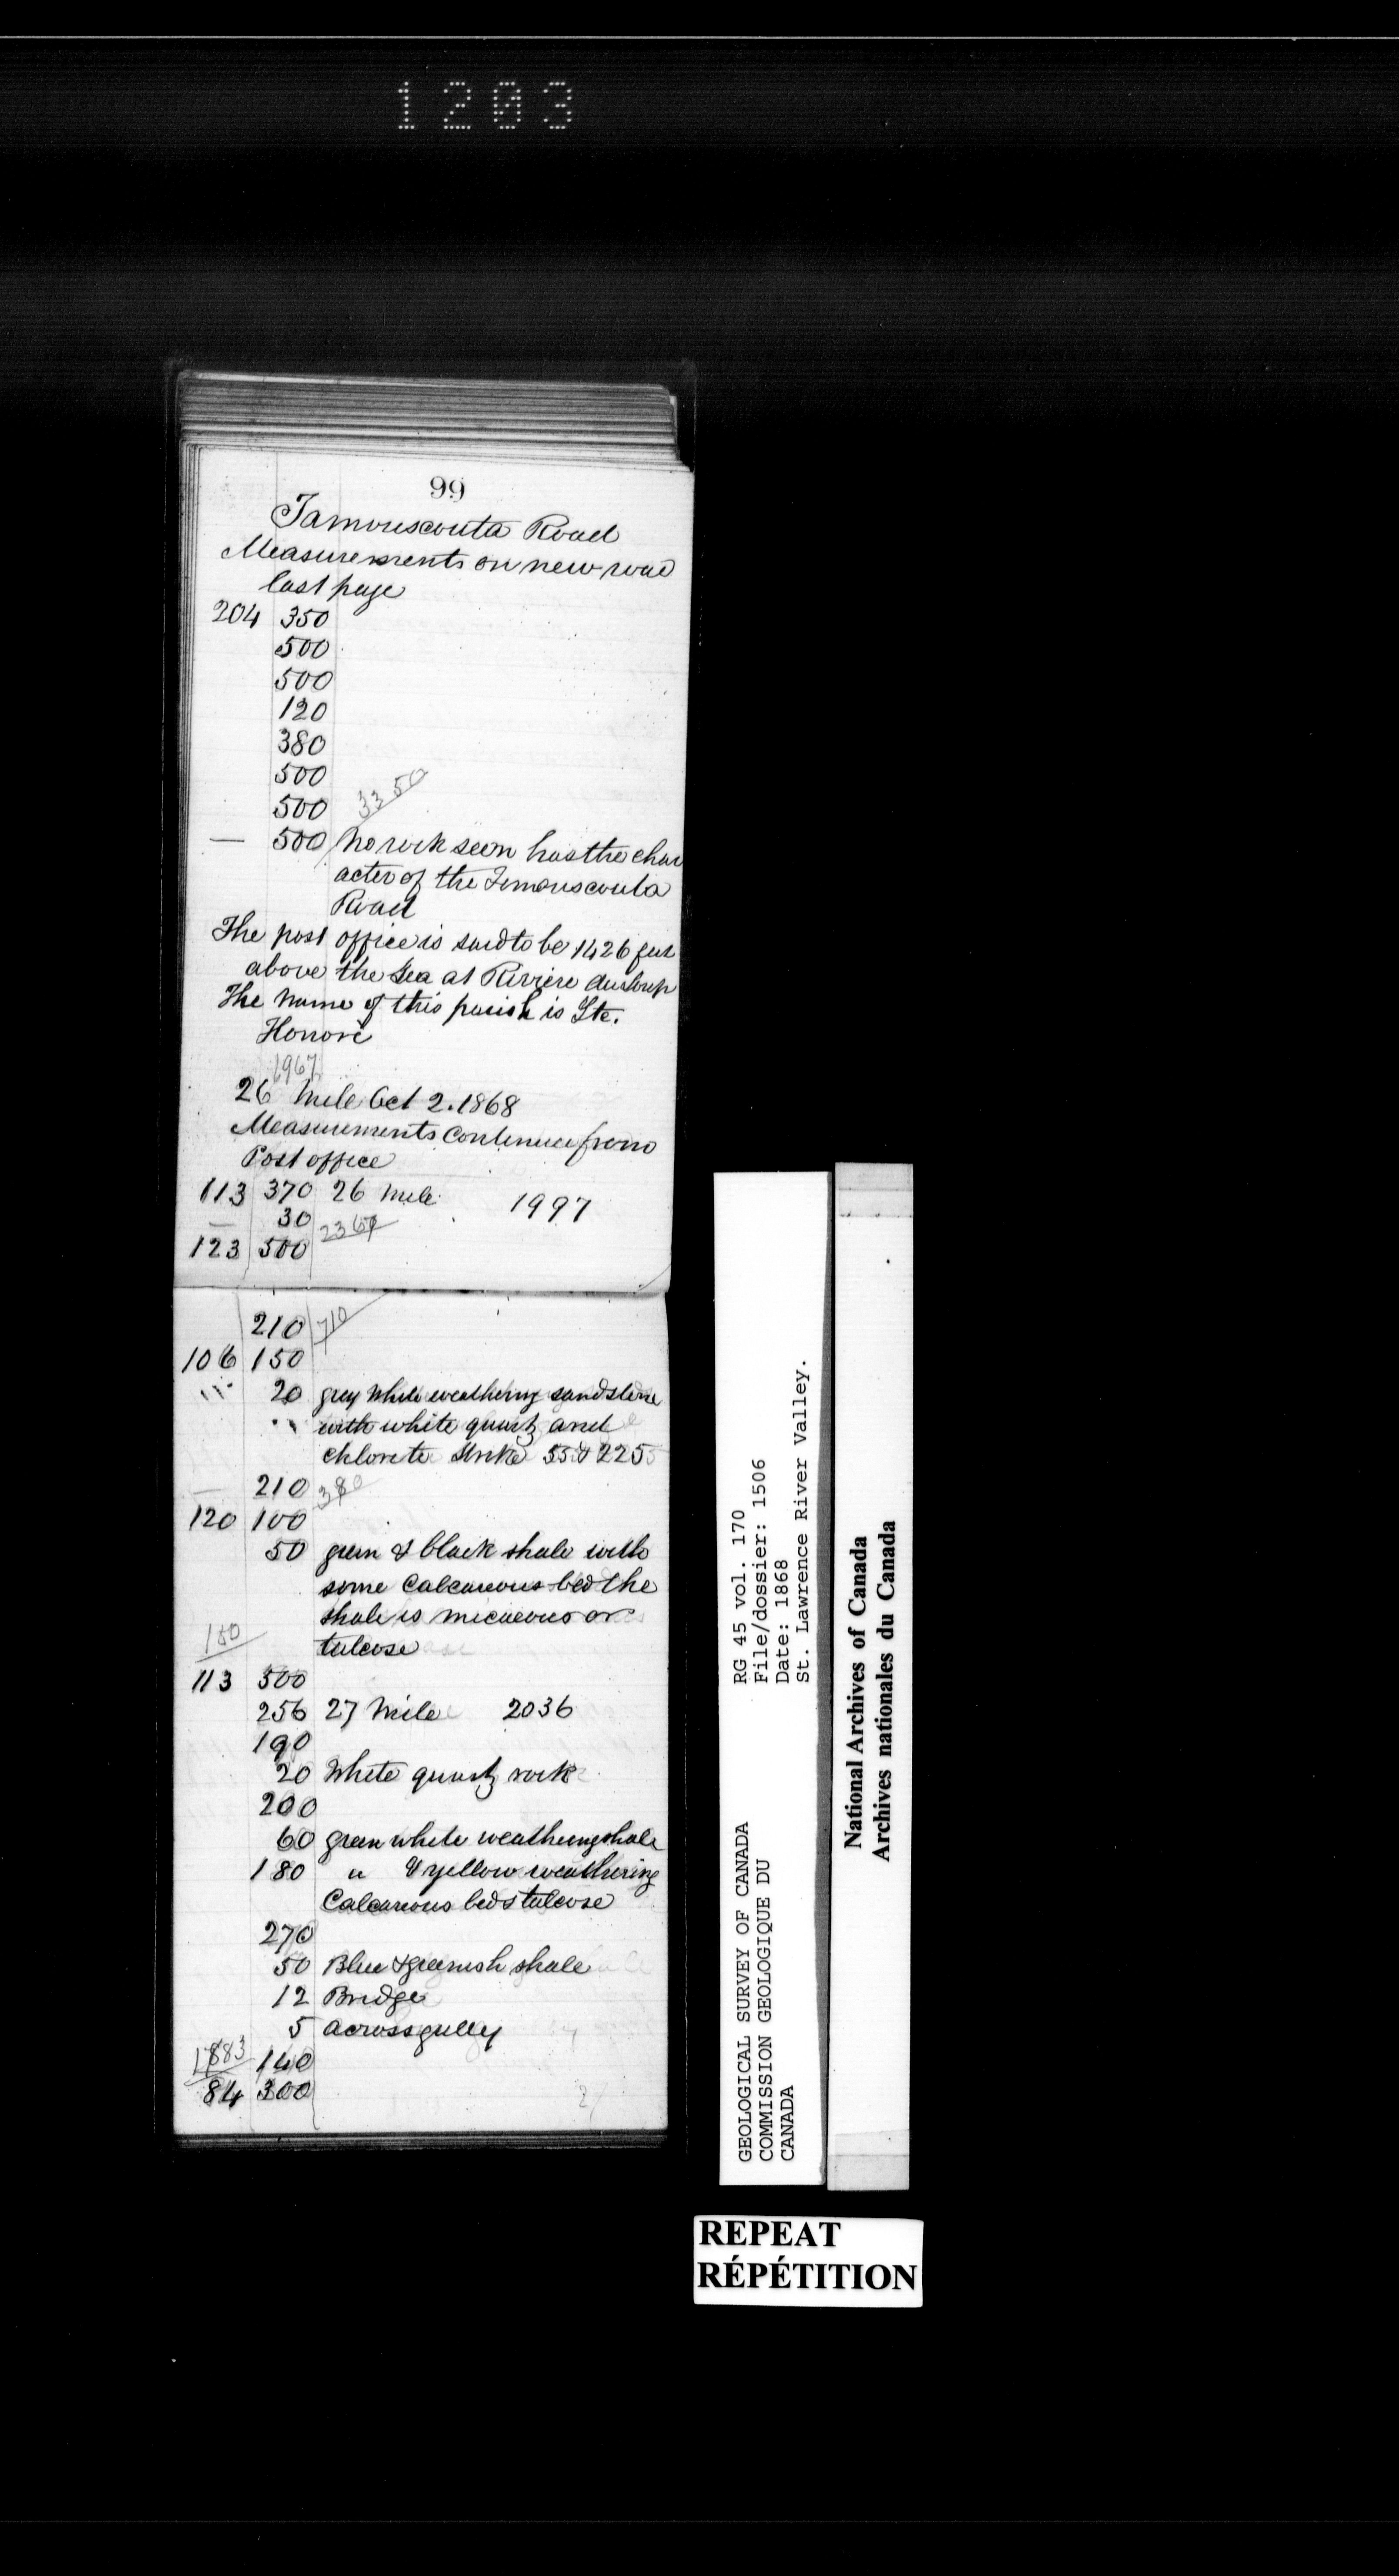 1203
99
Tamouscouta Road
Measurements on new road
last page
204 350
500
500
120
380
500
500 3350
— 500 No rock seen has the char
acter of the Temouscouta
Road
The post office is said to be 1426 feet
above the Sea at Riviere du Loup
The name of this parish is Ste.
Honore
1967
26 Mile Oct 2. 1868
Measurements continue from
Post office
113 370 26 Mile 1997
— 30 2367
123 500
210 710
106 150
20 grey White weathering sandstone
with white quartz and
chlorite Strike 55 & 225
210 380
120 100
50 green & black shale with
some Calcareous bed the
shale is micaceous or
150 talcose
113 500
256 27 Mile 2036
190
20 White quartz rock
200
60 green white weathering shale
180 " & yellow weathering
Calcareous beds talcose
270
50 Blue & greenish shale
12 Bridge
5 across gulley
1883 140
84 300
GEOLOGICAL SURVEY OF CANADA
COMMISSION GEOLOGIQUE DU
CANADA
RG 45 vol. 170
File/dossier: 1506
Date: 1868
St. Lawrence River Valley.
National Archives of Canada
Archives nationales du Canada
REPEAT
RÉPÉTITION